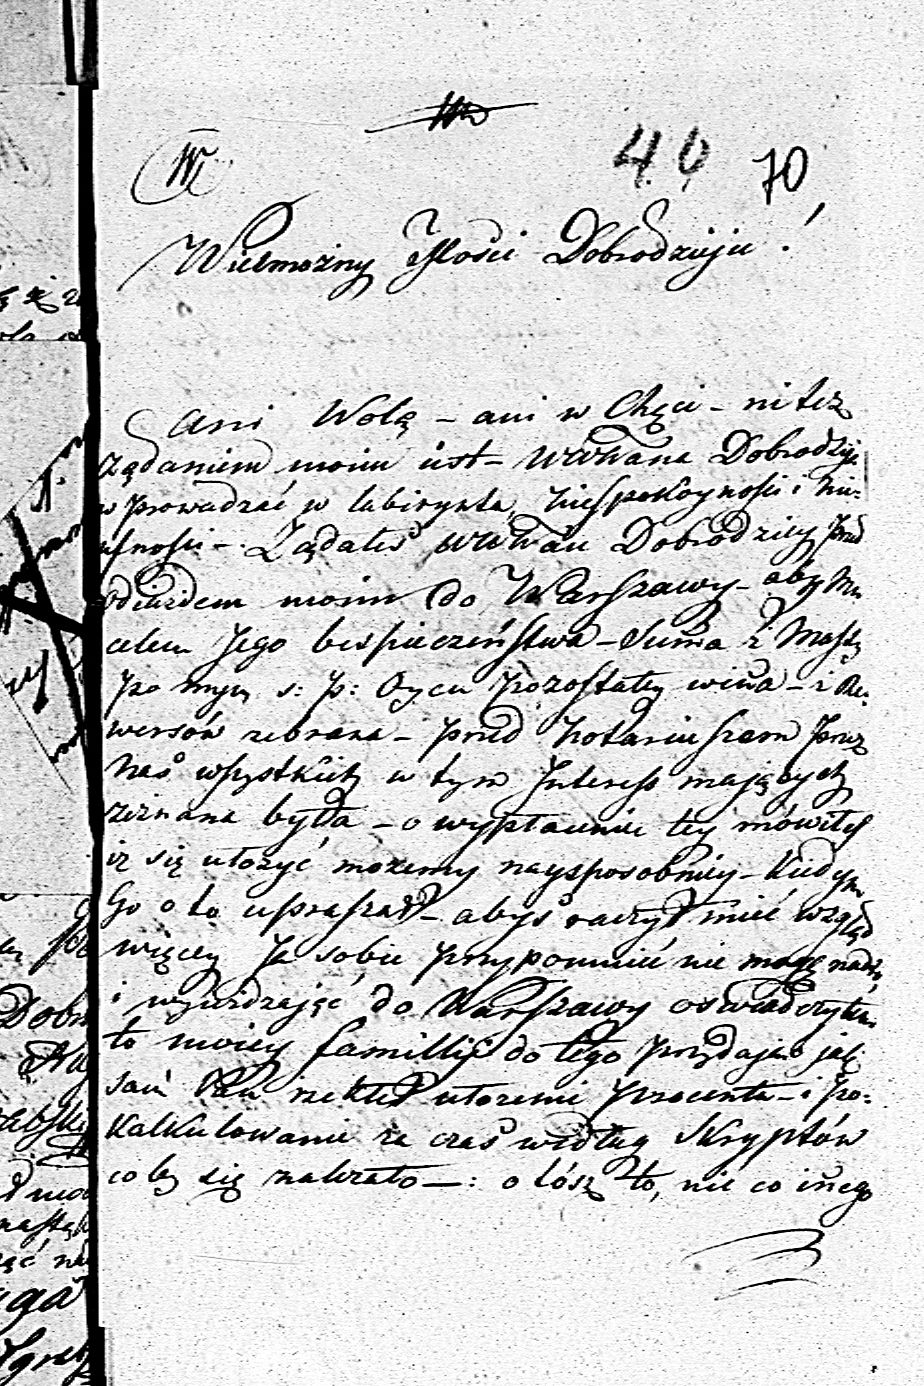 IV
40 70
Wielmożny Jmości Dobrodzieju!
Ani Wolą – ani w Chęci – ni też
żądaniem moim iest – WWWana Dobrodzieja
wprowadzać w labirynta, niespokoyności i nie-
ufności – Żądałeś WWWan Dobrodziey przed
odiazdem moim do Warszawy – aby
celem Jego bespieczeństwa – Suma z Massy
po mym s: p: Oycu pozostałey winna – i Re-
wersów zebrana – przed Notariuszem przez
Nas wszystkich w tym Interess mających
zeznana była – o wypłacenie tey mówiłeś
iż się ułożyć możemy nayysposobniey – kiedym
Go o to upraszał – abyś raczył mieć wzgląd
więcey Ja sobie przypomnieć nie mogę nadto
i wyjeżdzając do Warszawy oswiadczyłem
to moiey familliy do tego przydając jak
sam Pan rzekłeś ułożenie procentu – i po-
kalkulowanie za czas według Skryptów
coby się należało –: otósz to, nie co inego